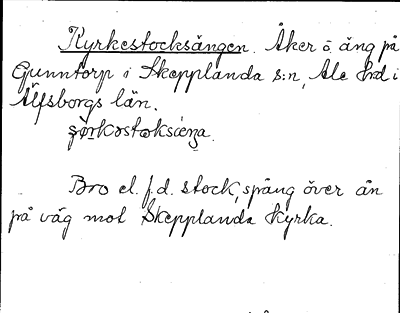 Kyrkestocksängen. Åker o. äng på
Gunntorp i Skepplanda s:n, Ale hd i
Älfsborgs län.
Bro el. f.d. stock, spång över ån
på väg mot Skepplanda kyrka.